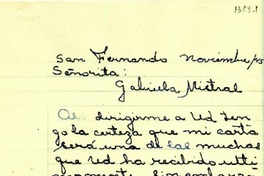 San Fernando Noviembre/
Señorita:
Gabriela Mistral
Al dirigirme a Ud ten
go la certeza que mi carta
será una de las muchas
que Ud ha recibido ulti